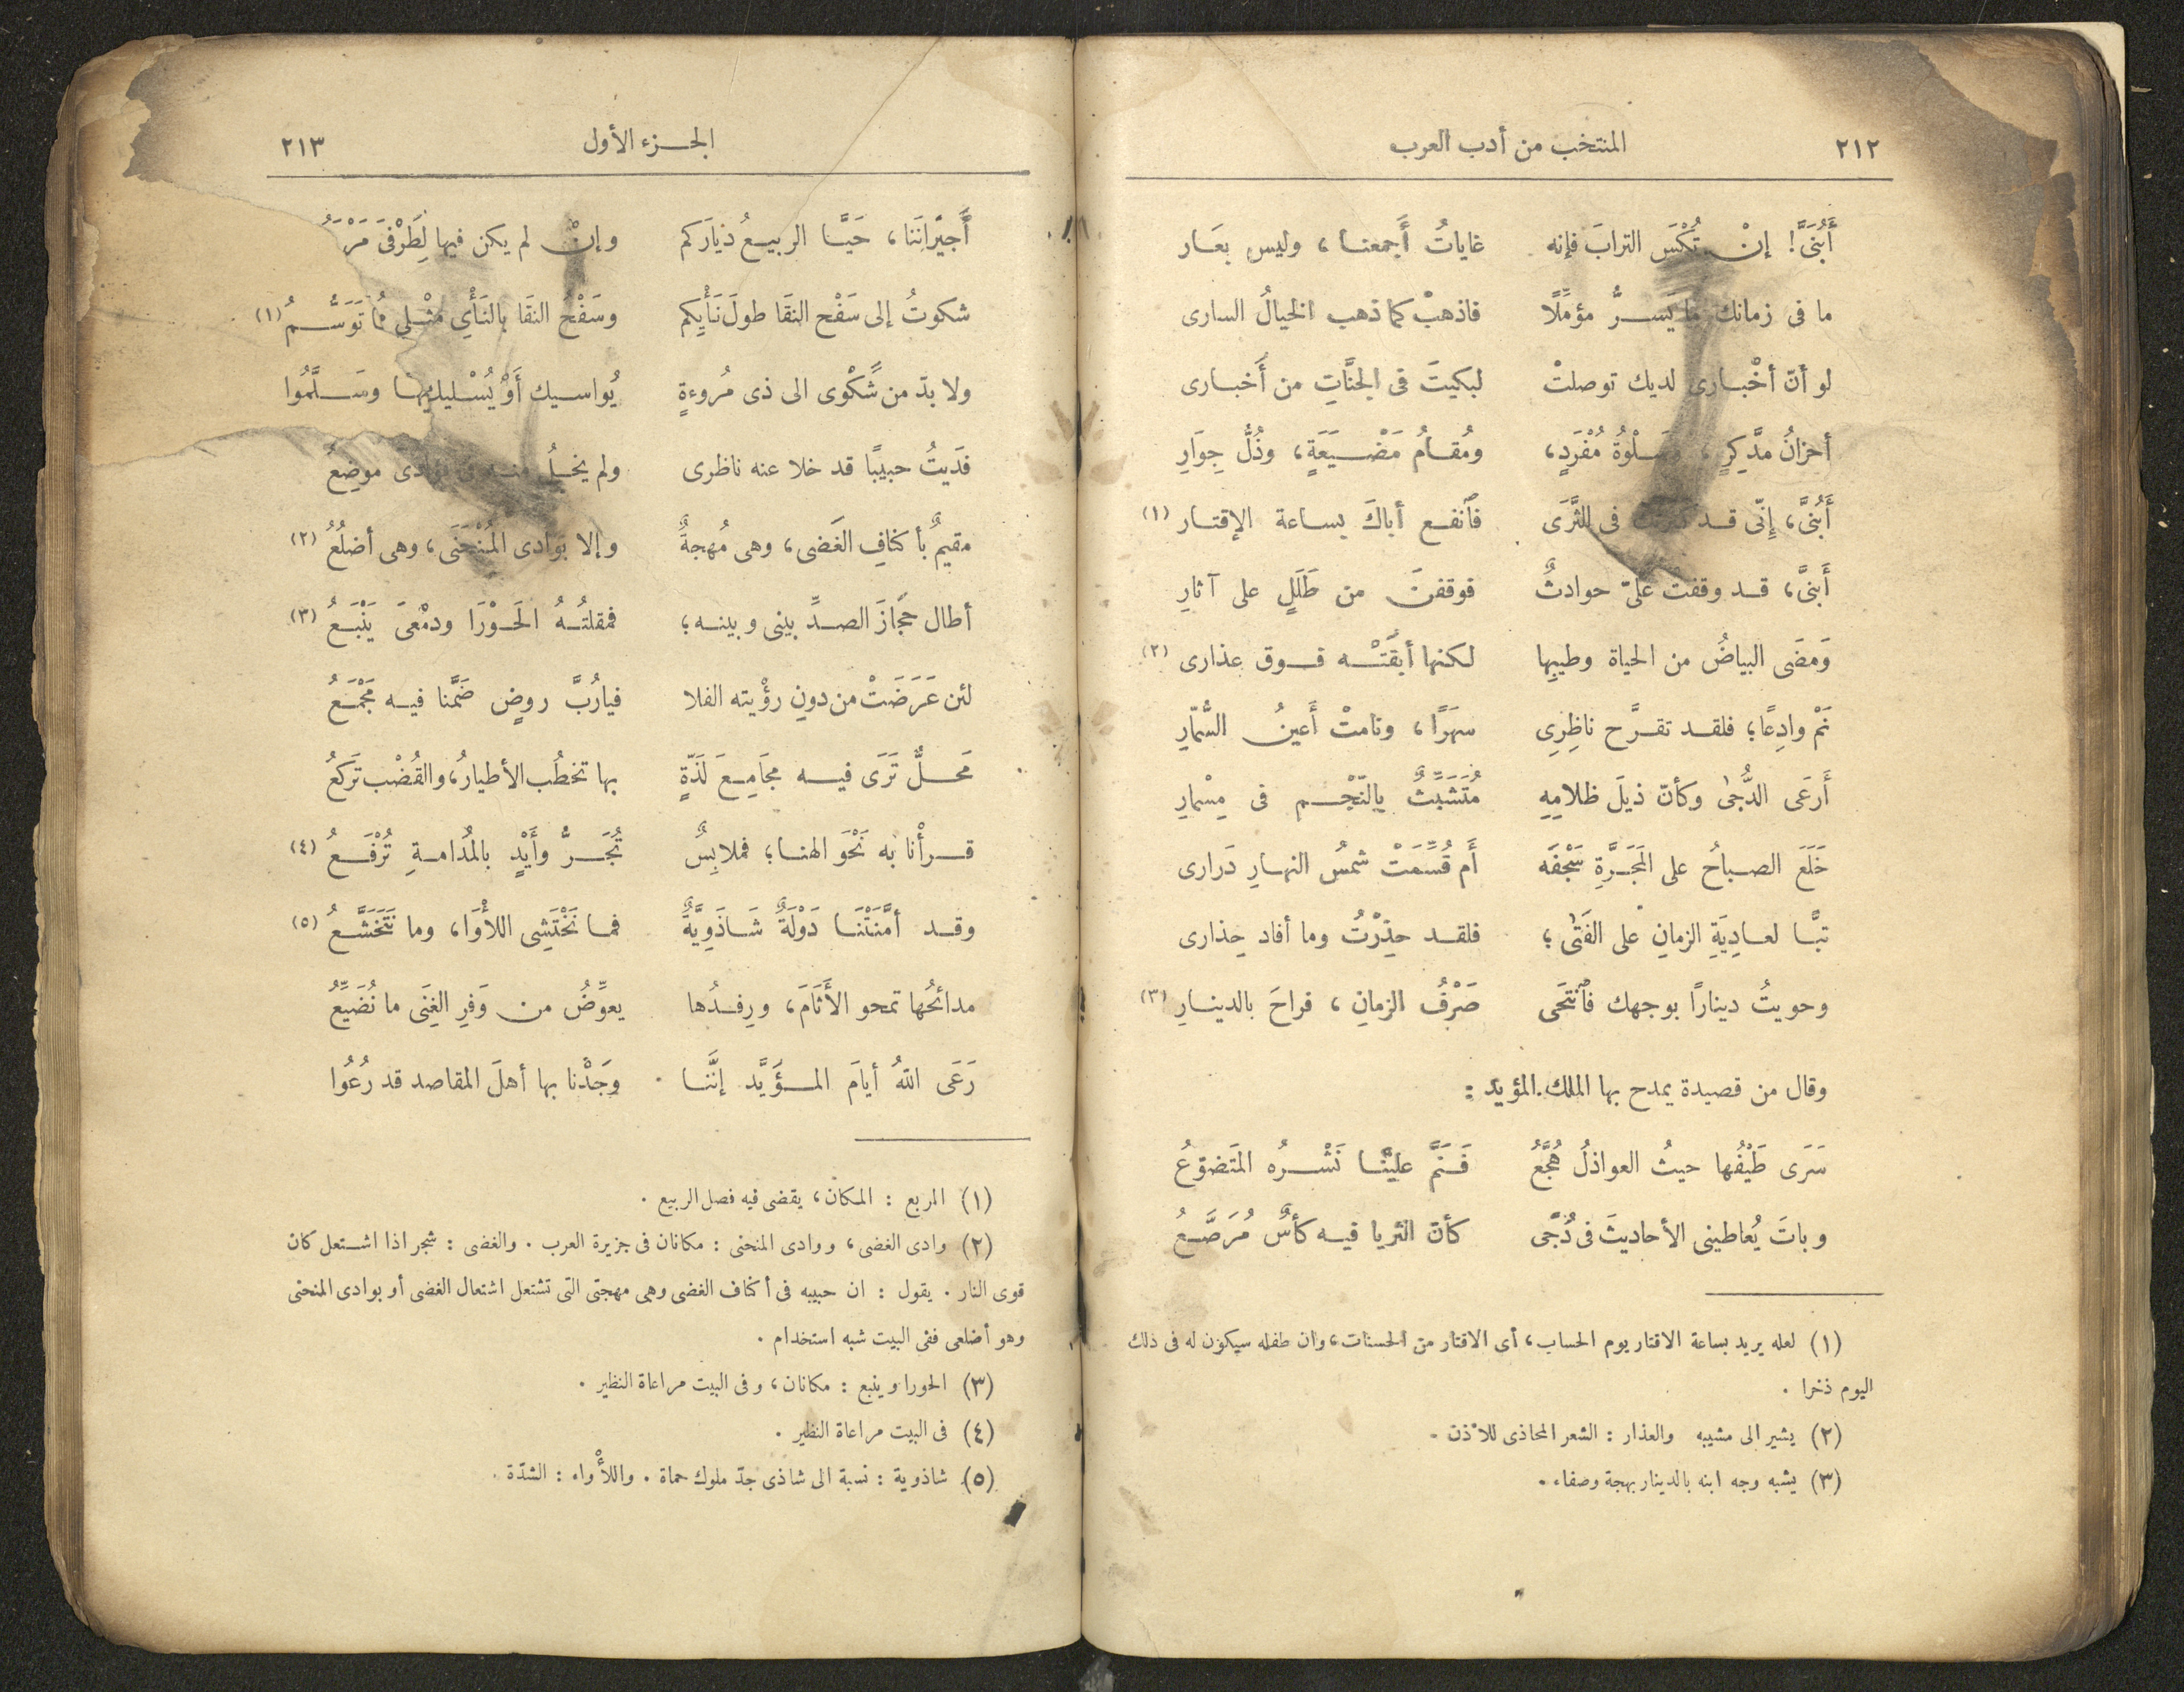 ٢١٢ المنتخب من أدب العرب
أَبُنَىَّ! إنْ تُكْسَ الترابَ فإنه غاياتُ أَجمعنا، وليس بعَار
ما فى زمانك ما يَسرُّ مؤمِّلًا فاذهبْ كما ذهب الخيالُ السارى
لو أنّ أخْبارى لديك توصلتْ لبكيتَ فى الجنَّاتِ من أَخبارى
أحزانُ مدَّكِرٍ، وسَلْوةُ مُفْرَدٍ، ومُقامُ مَضْيَعَةٍ، وذُلُّ جِوَارِ
أَبُنىَّ، إِنّى قد فى الثَّرَى فٱنفع أباكَ بساعة الإقتار (١)
أَبنىَّ، قد وقفت علىّ حوادثٌ فوقفنَ من طَلَلٍ على آثارِ
وَمضَى البياضُ من الحياة وطيبِها لكنها أبقَتْه فوق عذارى (٢)
نَمْ وادِعًا؛ فلقد تقرَّح ناظِرِى سهَرًا، ونامتْ أَعينُ السُّمّارِ
أَرعَى الدُّجىٰ وكأنّ ذيلَ ظلامِهِ مُتَشَبِّثٌ بالنَجْم فى مِسْمارِ
خَلَعَ الصباحُ على المَجَرَّةِ سَجْفَه أَم قُسِّمَتْ شمسُ النهارِ دَرارى
تبًّا لعادِيَةِ الزمانِ على الفَتَى؛ فلقد حذِرْتُ وما أفاد حِذارى
وحويتُ دينارًا بوجهك فٱنتحَى صَرْفُ الزمانِ، فراحَ بالدينارِ (٣)
وقال من قصيدة يمدح بها الملك المؤيد :
سَرَى طَيْفُها حيثُ العواذلُ هُجَّعُ فَنَمَّ علينْا نَشْرُه المتَضوّعُ
وباتَ يُعاطينى الأحاديثَ فى دُجًى كأنّ الثريا فيه كأسٌ مُرَصَّعُ
(١) لعله يريد بساعة الاقتار يوم الحساب، أى الاقتار من الحسنات، وان طفله سيكون له فى ذلك
اليوم ذخرا .
(٢) يشير الى مشيبه والعذار : الشعر المحاذى للأذن .
(٣) يشبه وجه ابنه بالدينار بهجة وصفاء .
الجزء الأول ٢١٣
أَجيْرانَنا، حَيَّا الربيعُ دِيَارَكم وإنْ لم يكن فيها لِطَرْفىَ
شكوتُ إلى سَفْح النقَا طولَ نَأْيِكم وسَفْحُ النقَا بالنَأْيِ مثْلِي (١)
ولا بدّ من شَكْوى الى ذى مُروءةٍ يُواسيك أَوْ يُسْليك
فدَيتُ حبيبًا قد خلا عنه ناظرى ولم يخلُ منه فى فؤادى موضِعُ
مقيمٌ بأكنافِ الغَضى، وهى مُهجةٌ وإلا بوادى المُنْحَنَى، وهى أضلُعُ (٢)
أطال حجَازَ الصدِّ بينى وبينه؛ فمقلتُهُ الحَوْرَا ودمْعىَ يَنْبَعُ (٣)
لئن عَرَضَتْ من دونِ رؤْيته الفلا فيارُبَّ روضٍ ضَمَّنا فيه مَجْمَعُ
مَحلٌّ تَرَى فيه مجَامِعَ لَذّةٍ بها تخطُب الأطيارُ، والقُضْب تَركَعُ
قرأْنا به نَحْوَ الهنا؛ فملابِسٌ تُجَرُّ وأَيْدٍ بالمُدامةِ تُرْفَعُ (٤)
وقد أمَّنَتْنَا دَوْلَةٌ شَاذَوِيَّةٌ فما نَخْتَشِى اللأْوَا، وما نَتَخَشَّعُ (٥)
مدائحُها تمحو الأَثَامَ، ورِفدُها يعوِّضُ من وَفرِ الغِنَى ما نُضَيِّعُ
رَعَى اللهُ أيامَ المؤَيَّد إنَّنا وجَدْنا بها أهلَ المقاصد قد رُعُوا
(١) المربع : المكان، يقضى فيه فصل الربيع .
(٢) وادى الغضى، ووادى المنحنى : مكانان فى جزيرة العرب . والغضى : شجر اذا اشتعل كان
قوى النار . يقول : ان حبيبه فى أكناف الغضى وهى مهجتى التى تشتعل اشتعال الغضى أو بوادى المنحنى
وهو أضلعى ففى البيت شبه استخدام .
(٣) الحورا وينبع : مكانان، وفى البيت مراعاة النظير .
(٤) فى البيت مراعاة النظير .
(٥) شاذوية : نسبة الى شاذى جدّ ملوك حماة . واللأْواء : الشدّة .